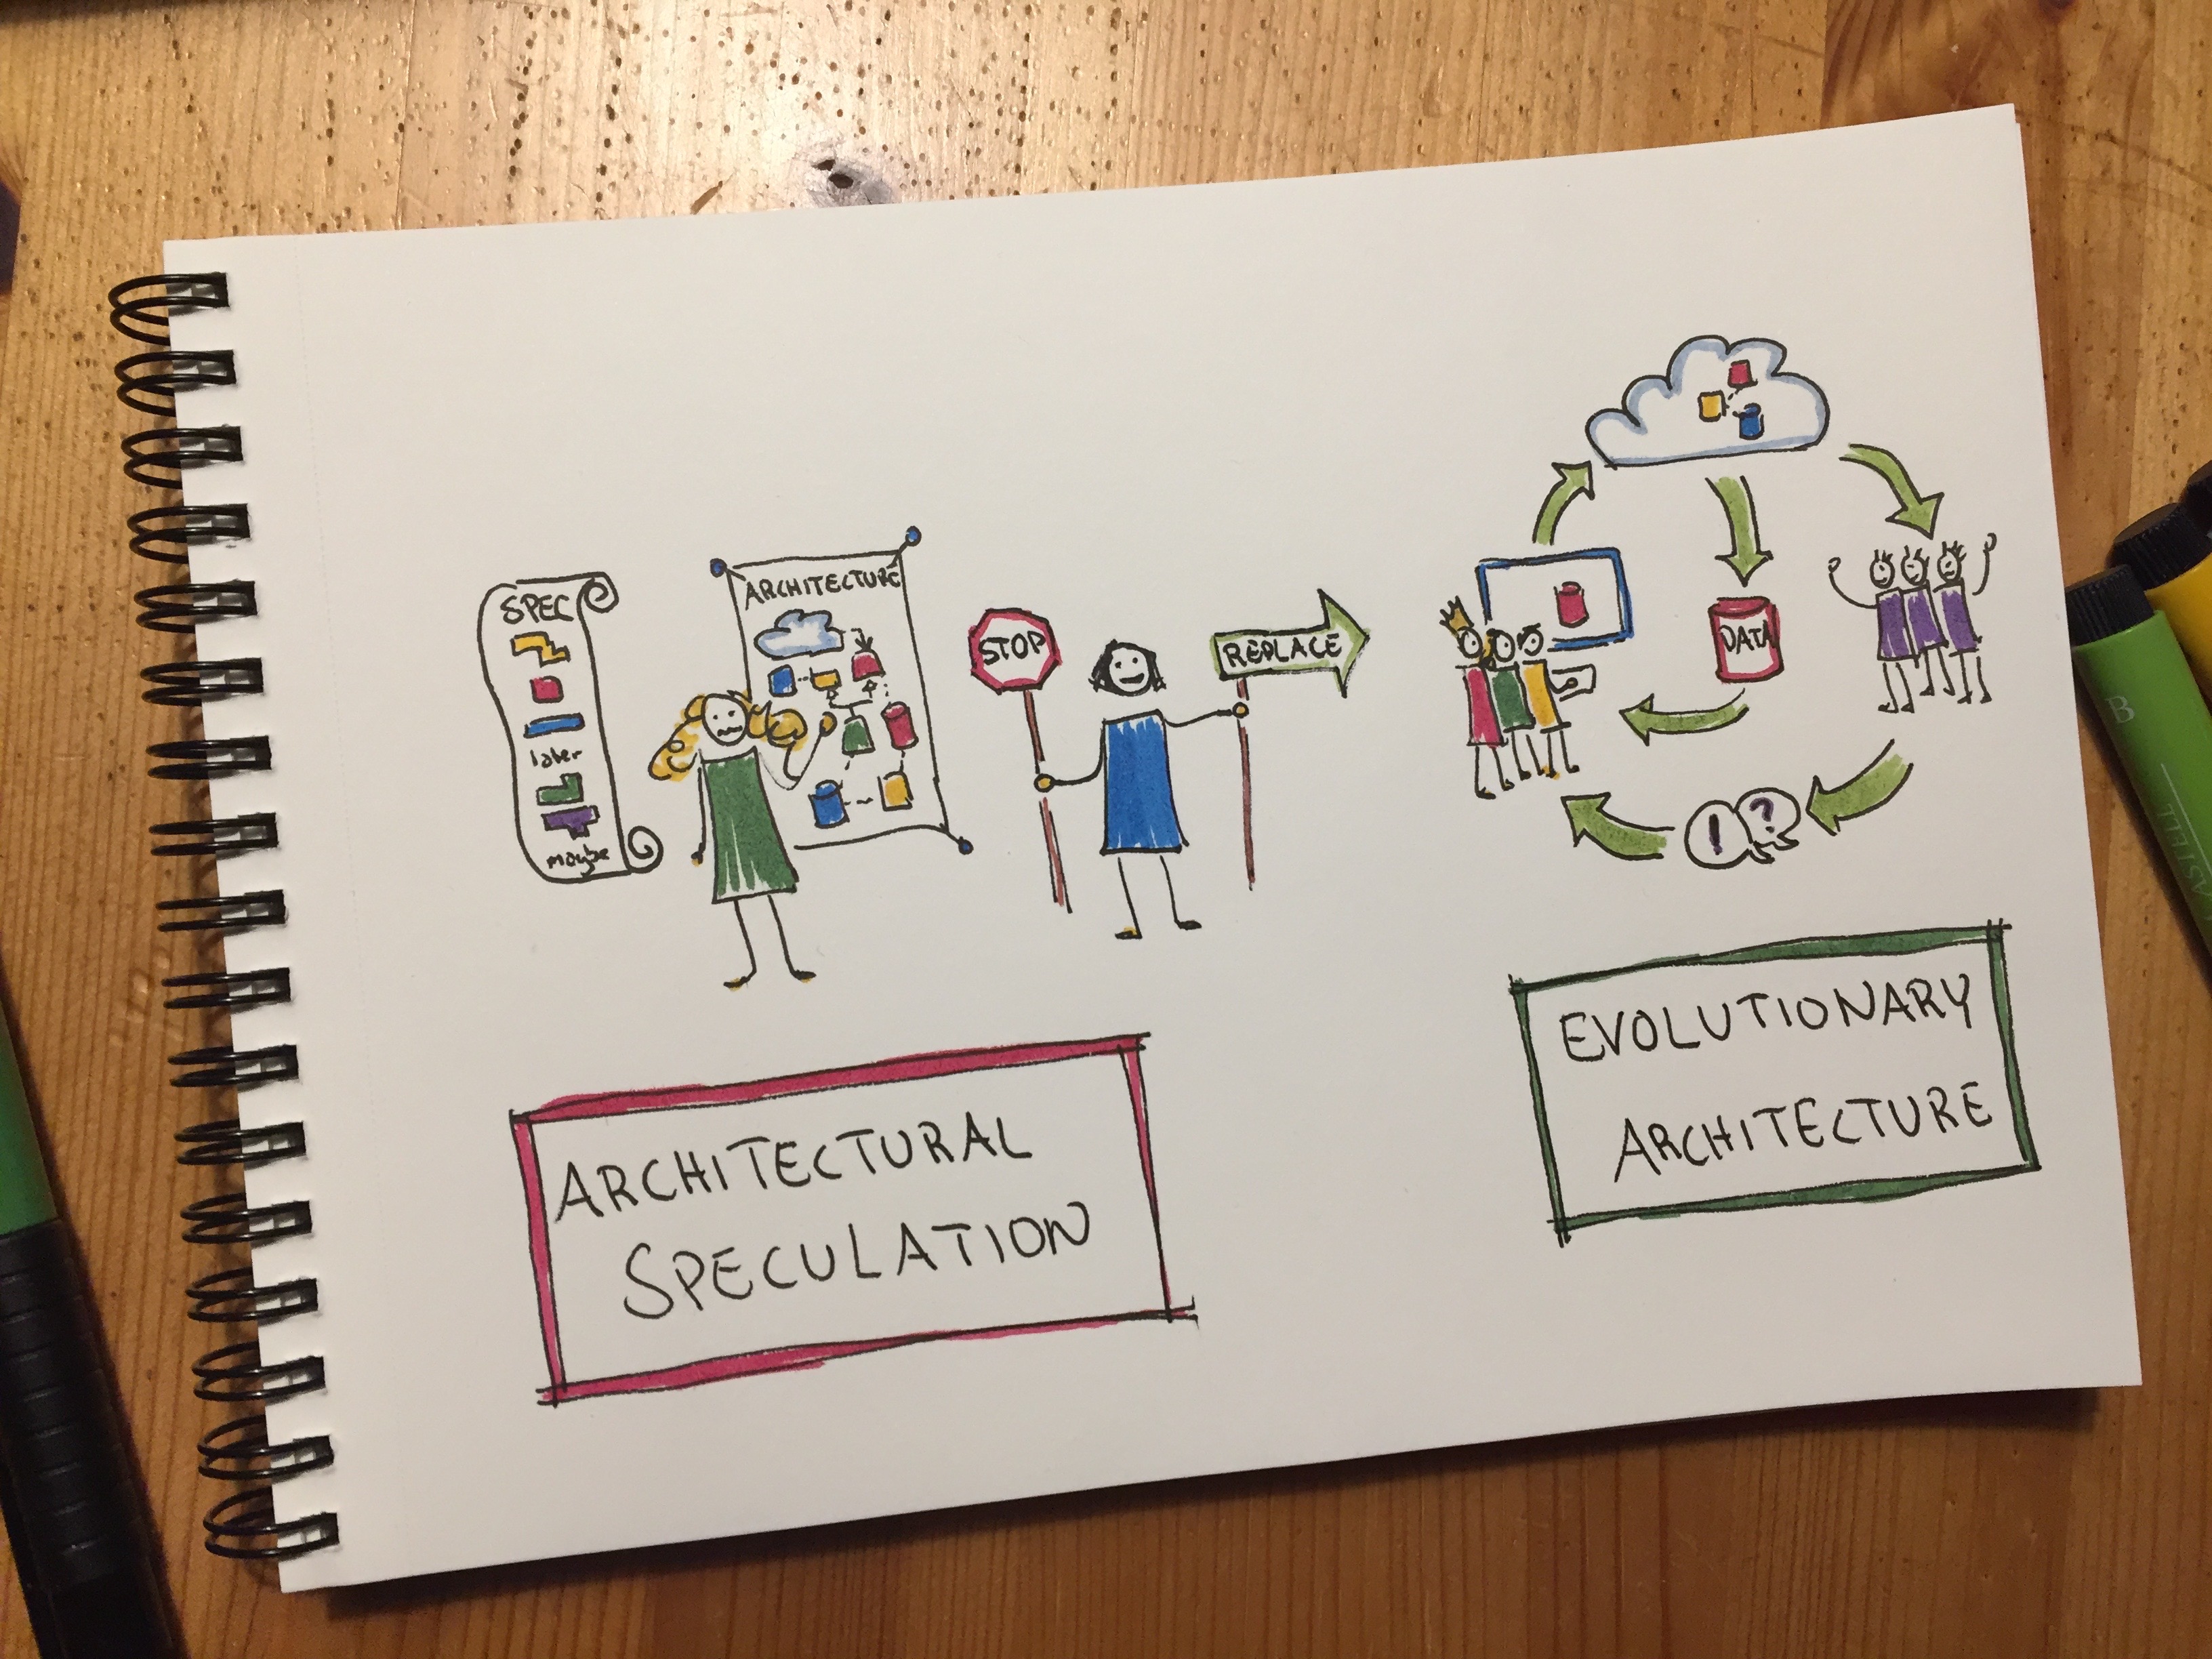 SPEC
later
maybe
ARCHITECTURE
STOP
REPLACE
DATA
!
?
ARCHITECTURAL
SPECULATION
EVOLUTIONARY
ARCHITECTURE
B